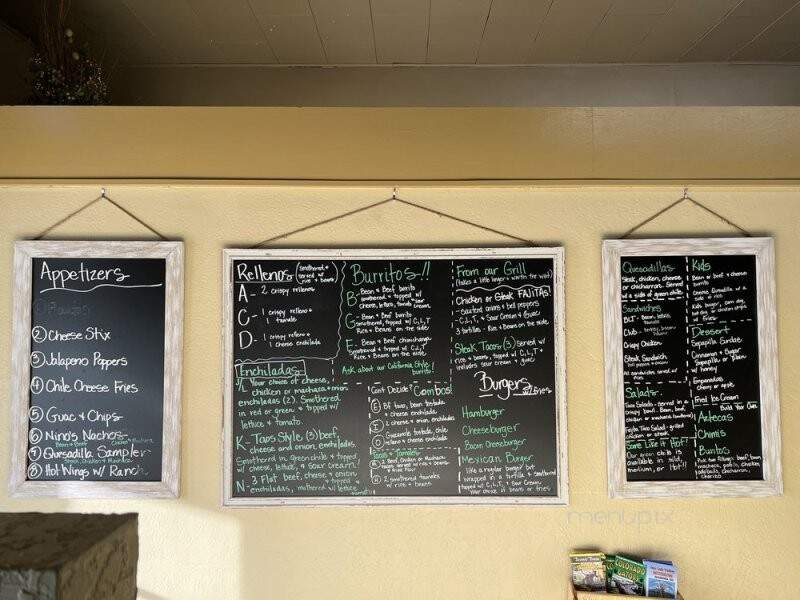 Appetizers
② Cheese Stix
③ Jalapeno Poppers
④ Chile Cheese Fries
⑤ Guac & Chips
⑥ Nino's Nachos
⑦ Quesadilla Sampler
⑧ Hot Wings w/ Ranch
Rellenos (smothered &
served w/
rice & beans)
A - 2 crispy rellenos
C - 1 crispy relleno &
1 tamale
D - 1 crispy relleno &
1 cheese enchilada
Enchiladas
Your choice of cheese,
chicken or machaca & onion
enchiladas (2). Smothered
in red or green & topped w/
lettuce & tomato.
K - Taos Style (3) beef,
cheese and onion enchiladas.
Smothered in green chile & topped
w/ cheese, lettuce, & sour cream!
N - 3 Flat beef, cheese & onion
enchiladas, smothered w/ lettuce
Burritos!!
B - Bean & Beef burrito
smothered & topped w/
cheese, lettuce, tomato,
G - Bean & Beef burrito
Smothered, topped w/ C, L, T
Rice & Beans on the side
E - Bean & Beef chimichanga
Smothered & topped w/ C, L, T
Rice & Beans
Ask about our California Style
burrito!
Can't Decide? Combos!
Bf taco, bean tostada
& cheese enchilada
2 cheese & onion enchiladas
Guacamole tostada, chile
relleno & cheese enchilada
2 smothered tamales
w/ rice & beans
From our Grill
(takes a little longer & worth the wait)
Chicken or Steak FAJITAS!
Sauteed onions & bell peppers
- C, L, T, & Sour Cream & Guac
3 tortillas - Rice & Beans on the side
Steak Tacos (3) Served w/
rice & beans, topped w/ C, L, T &
includes sour cream & guac
Burgers w/ Fries
Hamburger
Cheeseburger
Bacon Cheeseburger
Mexican Burger
Like a regular burger but
wrapped in a tortilla & smothered
topped w/ C, L, T, & Sour Cream
Your choice of beans or fries
Quesadillas
Steak, chicken, cheese
or chicharron. Served
w/ a side of green chile
Sandwiches
BLT - Bacon, lettuce,
tomato
Club
Crispy Chicken
Steak Sandwich
All sandwiches served w/
fries
Salads
Taco Salad - Served in a
crispy bowl. Bean, beef,
chicken or machaca
Fajita Taco Salad - grilled
chicken or steak
Some Like it Hot!
Our green chile is
available in mild,
medium, or Hot!!
Kids
Bean or beef & cheese
burrito
Cheese Quesadilla w/ a
side of rice
Kids burger, corn dog,
Dessert
Sopapilla Sirdae
Cinnamon & Sugar
Sopapillas or Plain
w/ honey
Empanadas
Cherry or apple
Fried Ice Cream
Build Your Own
Aztecas
Chimis
Burritos
COLORADO